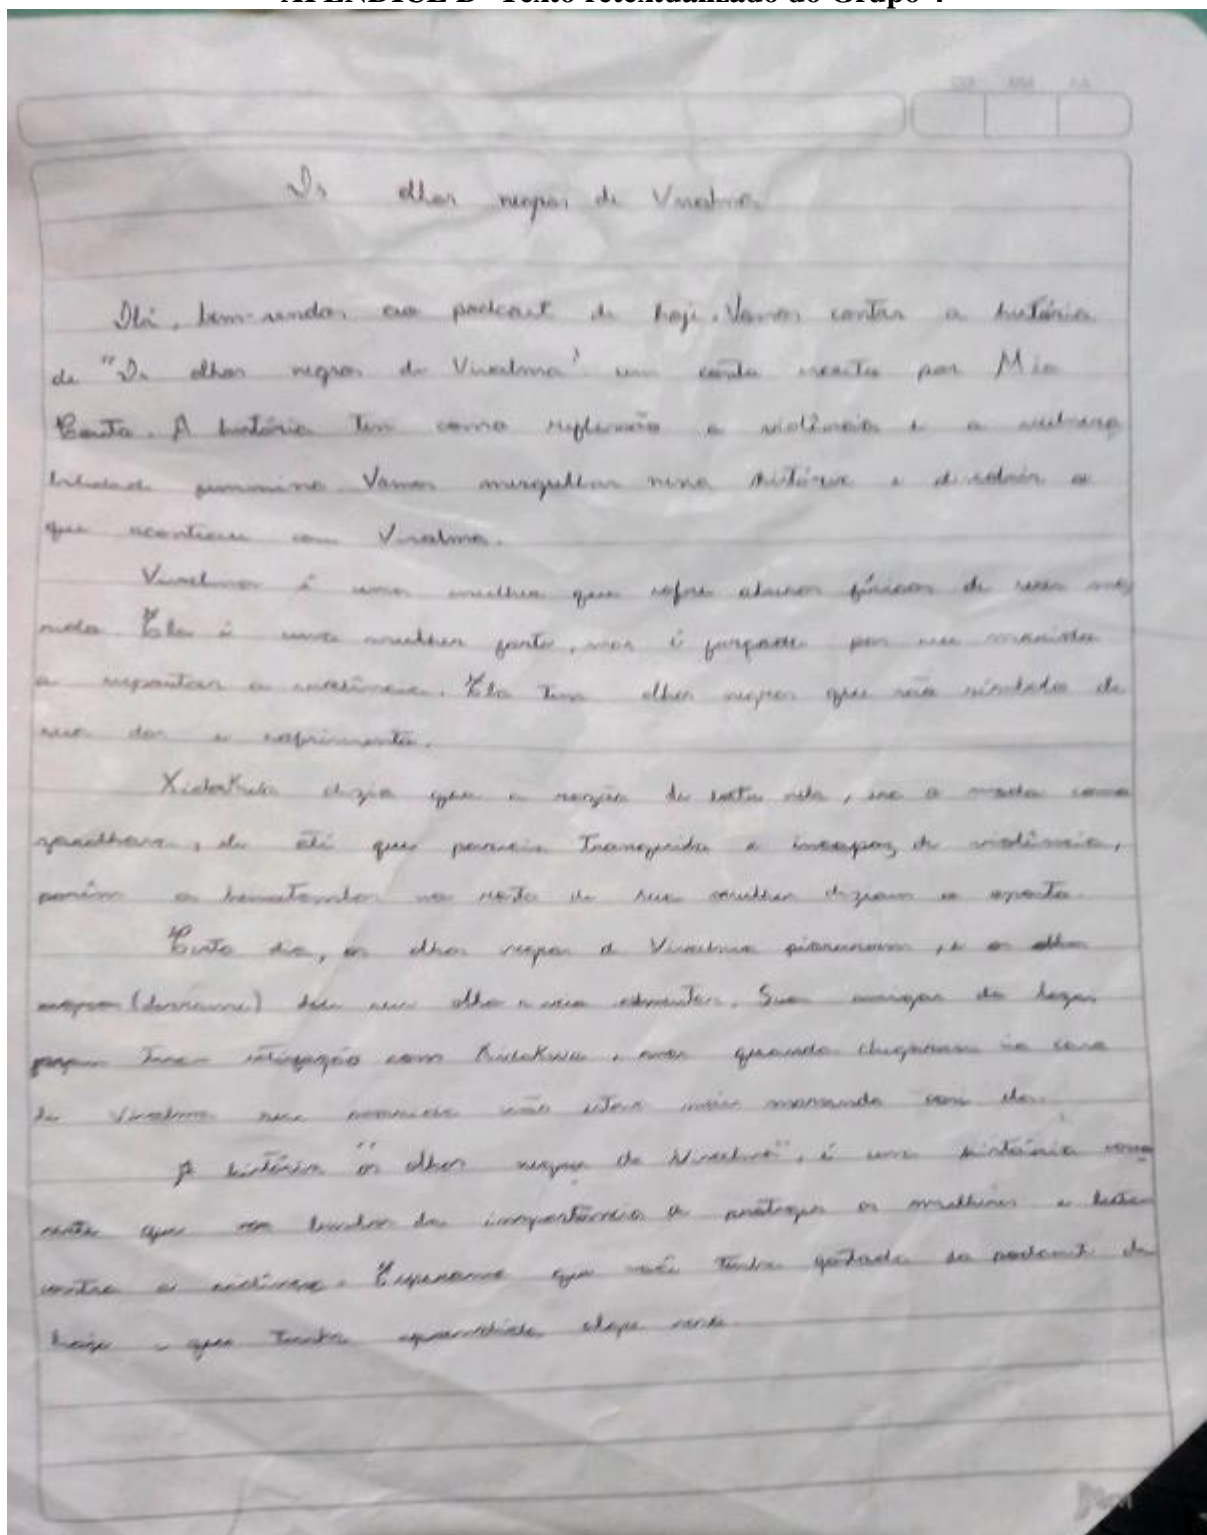 APÊNDICE D- Texto retextualizado do Grupo 4
Os olhos negros de Vivalma
Olá, bem-vindos ao podcast de hoje. Vamos contar a história
de "Os olhos negros de Vivalma" um conto escrito por Mia
Couto. A história tem como reflexão a violência e a vulnera
bilidade feminina. Vamos mergulhar nessa história e descobrir o
que aconteceu com Vivalma.
Vivalma é uma mulher que sofre abusos físicos de seu ma
rido. Ela é uma mulher forte, mas é forçada por seu marido
a suportar a violência. Ela tem olhos negros que são símbolo de
sua dor e sofrimento.
Xidakwa dizia que a razão de bater nela, era o modo como
, ele até que parecia tranquilo e incapaz de violência,
porém os hematomas no rosto de sua mulher diziam o oposto.
Certo dia, os olhos negros d Vivalma pioraram, e os olhos
(derrame) seu olho e . Suas amigas do
com , mas quando chegaram na casa
de Vivalma seu marido não estava mais morando com ela.
A história "os olhos negros de Vivalma", é uma história
que nos lembra da importância de proteger as mulheres e lutar
contra a violência. Esperamos que você tenha gostado do podcast de
hoje e que tenha aprendido